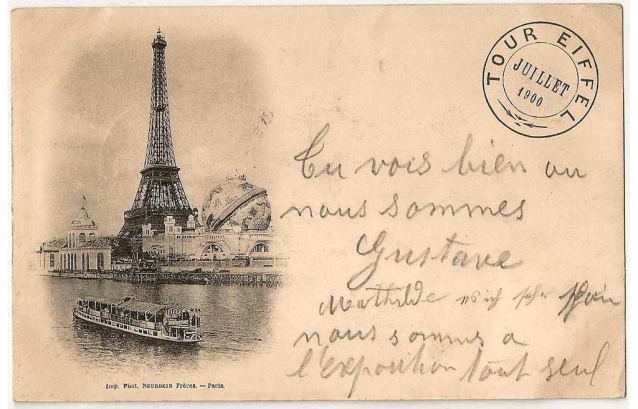 TOUR EIFFEL
JUILLET
1900
Tu vois bien ou
nous sommes
Gustave
Mathilde
nous sommes a
l'Exposition tout seul
Imp. Phot. NEURDEIN Frères. — Paris.